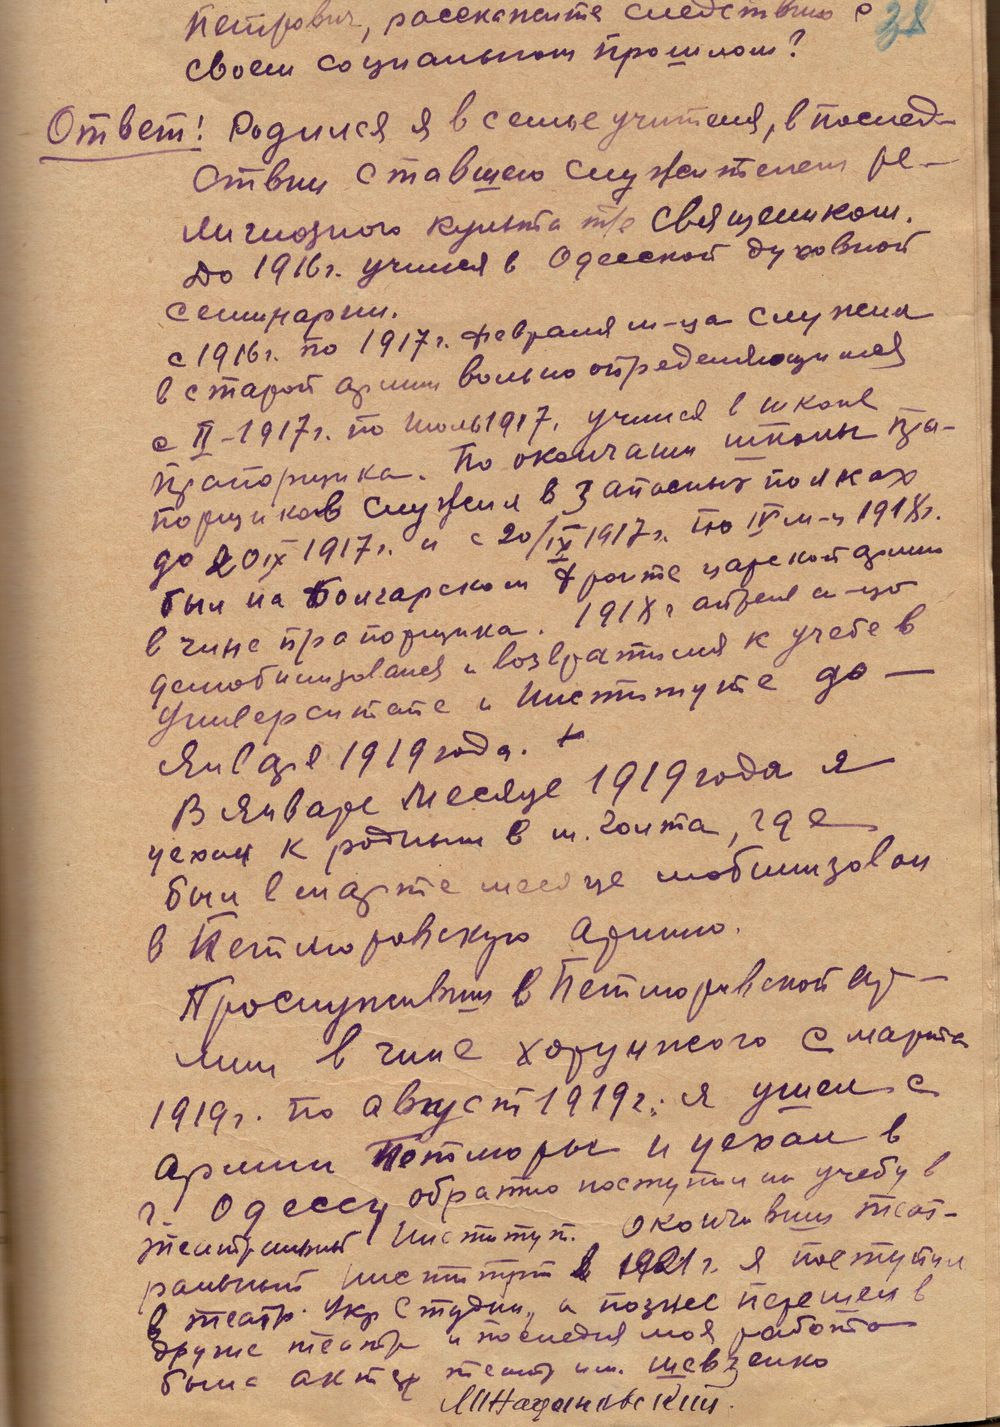 38
Петрович, расскажите следствию о
своем социальном прошлом?
Ответ: Родился я в семье учителя, в послед-
ствии ставшего служителем ре-
лигиозного культа т/е священиком.
До 1916г. учился в Одесской духовной
семинарии.
с 1916г. по 1917г. февраля м-ца служил
в старой армии вольноопределяющимся
с II-1917г. по июль 1917, учился в школе
прапорщика. По окончании школы пра-
порщиков служил в запасных полках
до 20 IX 1917г. и с 20/IX 1917г. по IV м-ц 1918г.
был на Болгарском фронте царской армии
в чине прапорщика. 1918г апреля м-ца
демобилизовался и возвратился к учебе в
университете и институте до -
Января 1919 года. +
В Январе месяце 1919 года я
уехал к родным в м. Голта, где
был в марте месяце мобилизован
в Петлюровскую армию.
Прослуживши в Петлюровской ар-
мии в чине хорунжого с марта
1919г. по август 1919г.; я ушел с
армии Петлюры и уехал в
г. Одессу обратно поступил на учебу в
театральный Институт. Окончивши теат-
ральный институт в 1921г. я поступил
в театр Укр Студии, а позже перешел в
другие театр и последняя моя работа
была актер театр им. Шевченко